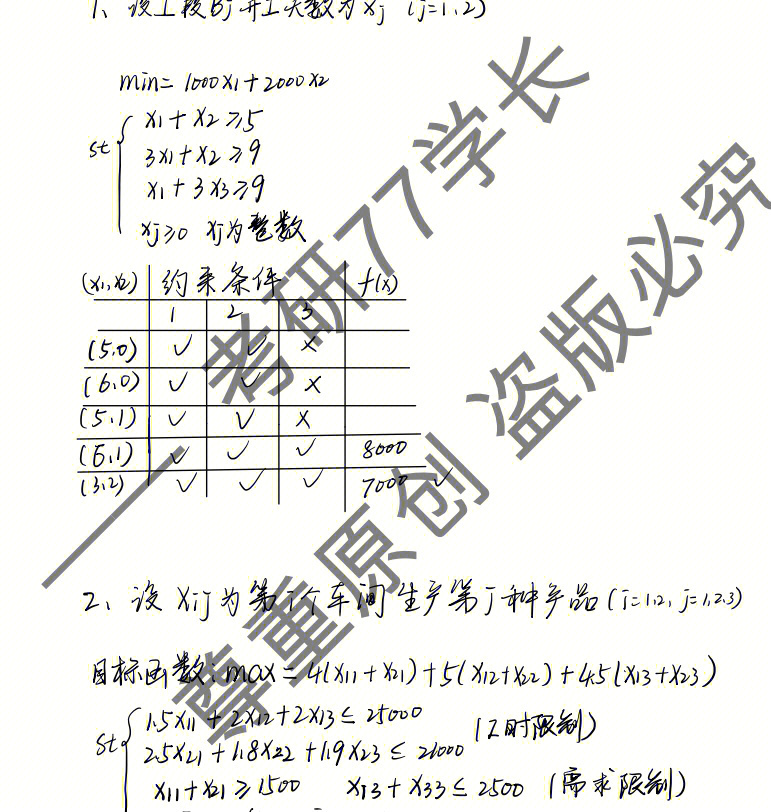 1、设工段Bj开工天数为xj (j=1,2)
min= 1000x1+2000x2
st
x1+x2≥5
3x1+x2≥9
x1+3x3≥9
xj≥0 xj为整数
(x1,x2) 约束条件 f(x)
1 2 3
(5,0) ✓ ✓ ×
(6,0) ✓ ✓ ×
(5,1) ✓ ✓ ×
(6,1) ✓ ✓ ✓ 8000
(3,2) ✓ ✓ ✓ 7000 ✓
2、设xij为第i个车间生产第j种产品(i=1,2, j=1,2,3)
目标函数: max=4(x11+x21)+5(x12+x22)+4.5(x13+x23)
st
1.5x11+2x12+2x13≤25000 (工时限制)
2.5x21+1.8x22+1.9x23≤21000
x11+x21≥1500 x13+x33≤2500 (需求限制)
——考研77学长
尊重原创 盗版必究